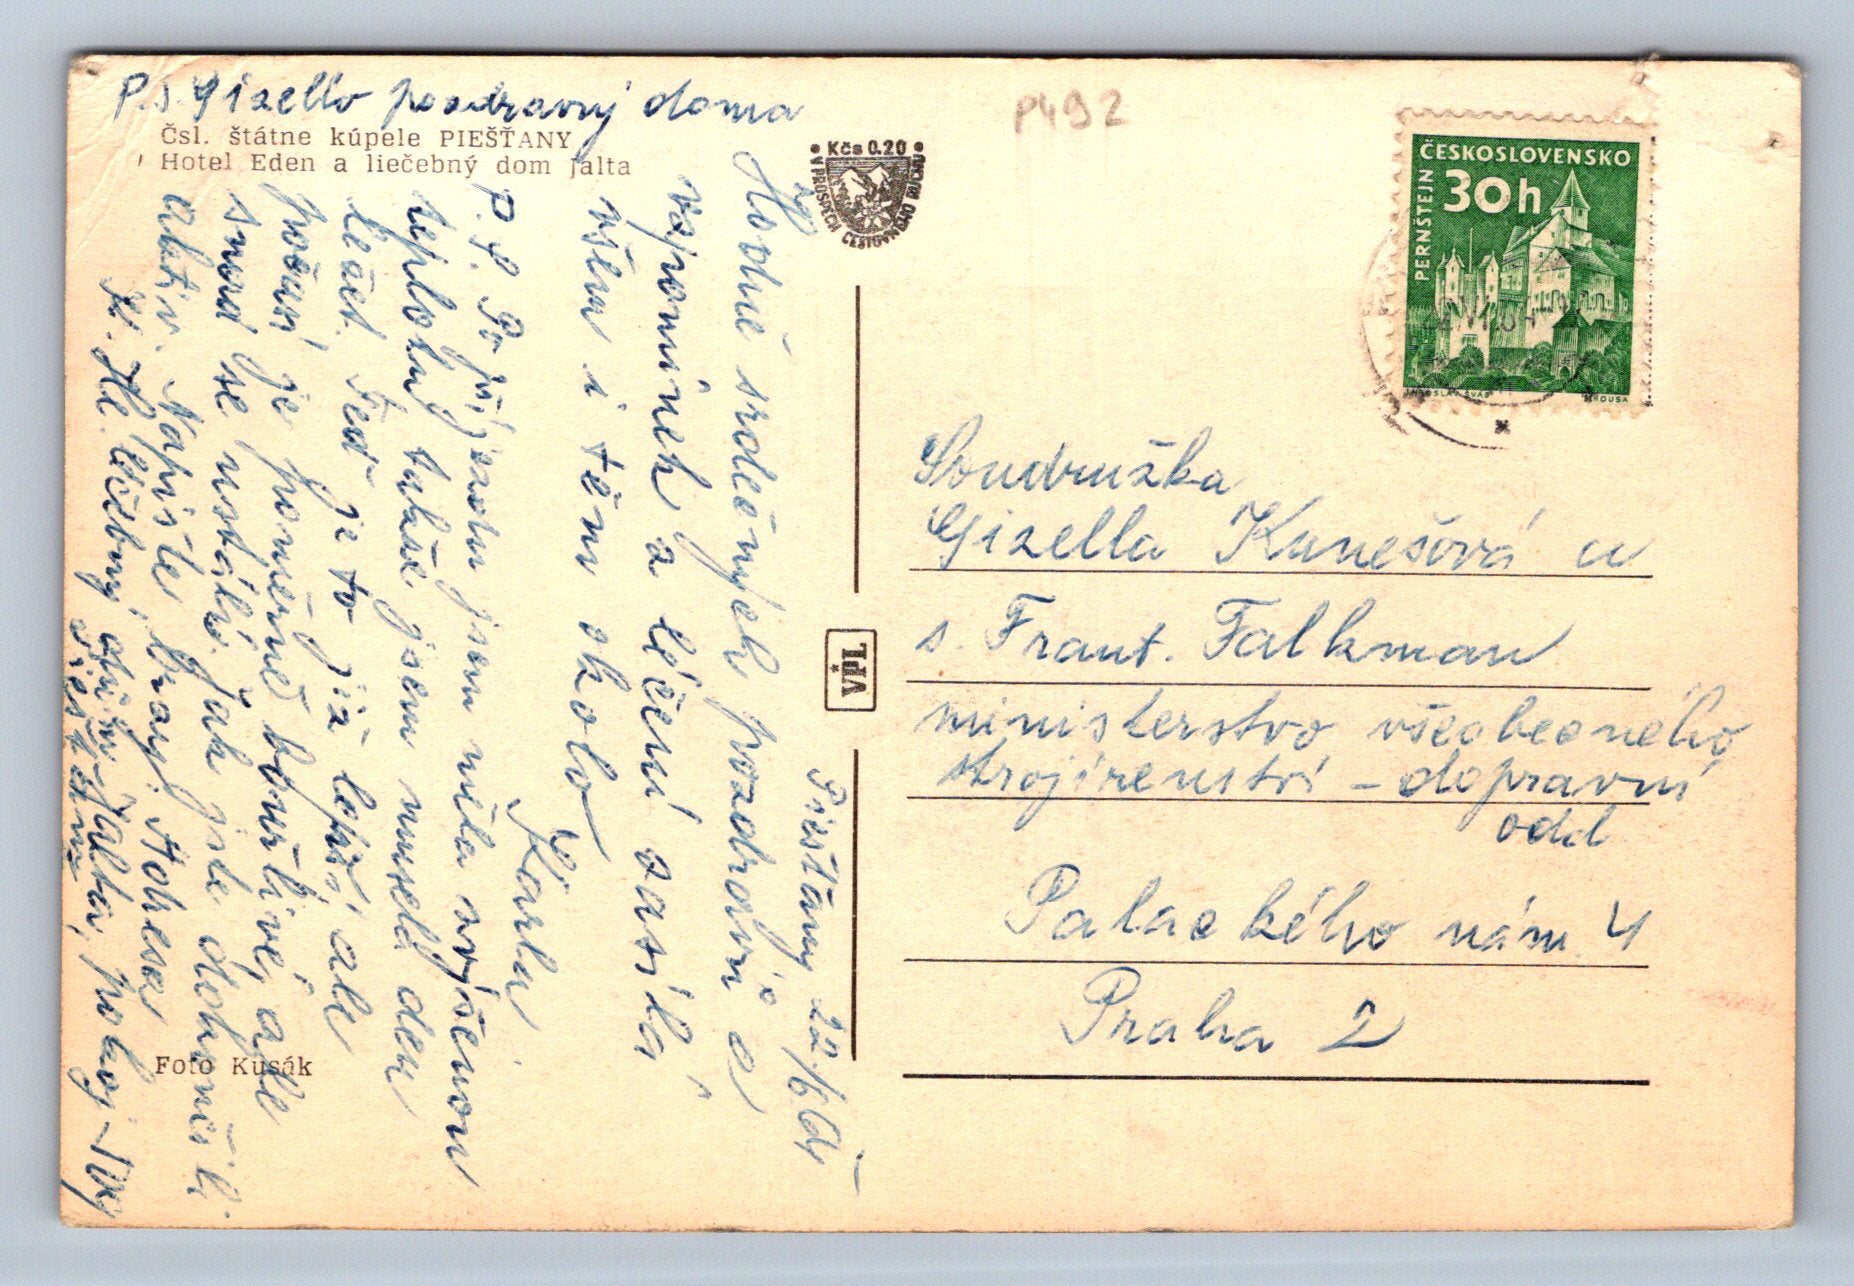 P.S. Gizello pozdravuj doma
Čsl. štátne kúpele PIEŠŤANY
Hotel Eden a liečebný dom Jalta
Kčs 0.20
V PROSPECH CESTOVNÉHO RUCHU
P492
ČESKOSLOVENSKO
30h
PERNŠTEJN
JAROSLAV ŠVÁB
MROUSA
Piešťany 22/6 64
Hodně srdečných pozdravů a
vzpomínek z léčení zasílá
všem i těm okolo
Karla
P.S. Po příjezdu jsem měla zvýšenou
teplotu, takže jsem musela den
ležet. Teď je to již lepší, ale
počasí je poměrně bouřlivé, ale
snad se ustálí. Jak jste dokončili
aktiv. Napište brzy. Adresa
K. H. léčebný dům Jalta, pokoj
Piešťany
Foto Kusák
VPL
Soudružka
Gizella Kunešová a
s. Frant. Falkman
ministerstvo všeobecného
strojírenství - dopravní
odd
Palackého nám. 4
Praha 2